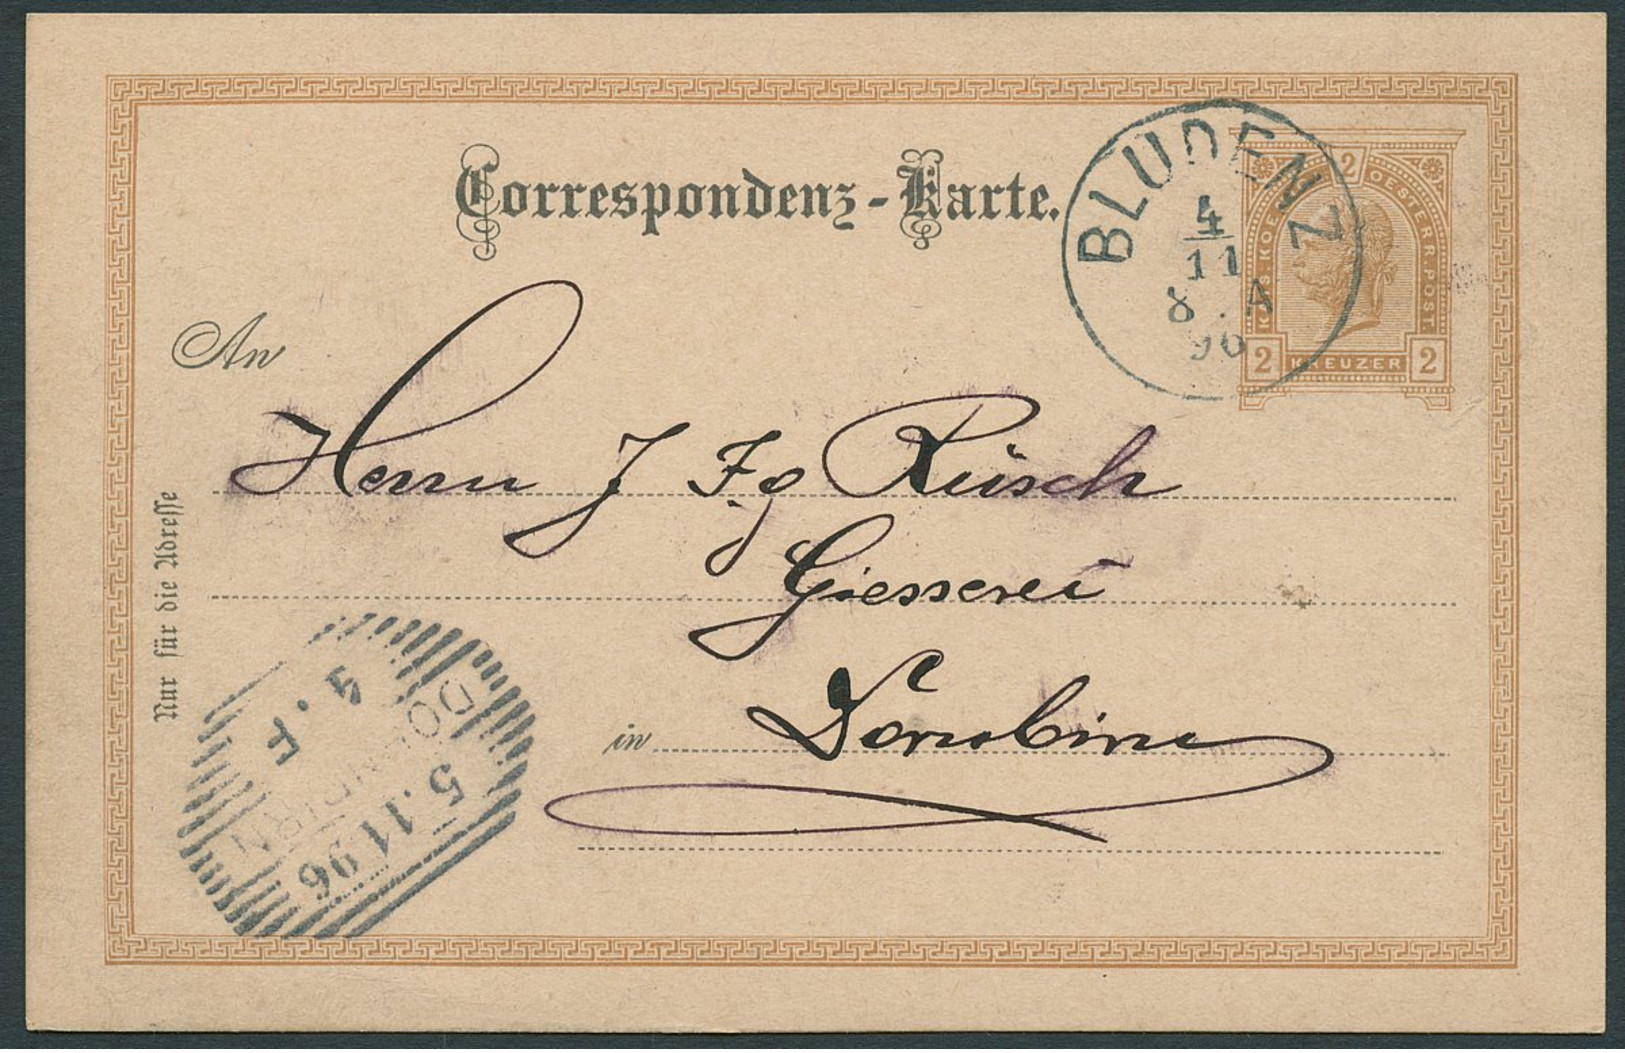 Correspondenz-Karte.
2
KAIS. KOE. OESTERR. POST.
2 KREUZER 2
BLUDENZ
4
11
8 . A
96
An
Herrn J Fg Rüsch
Giesserei
in Dornbirn
Nur für die Adresse
DORNBIRN
5.11.96